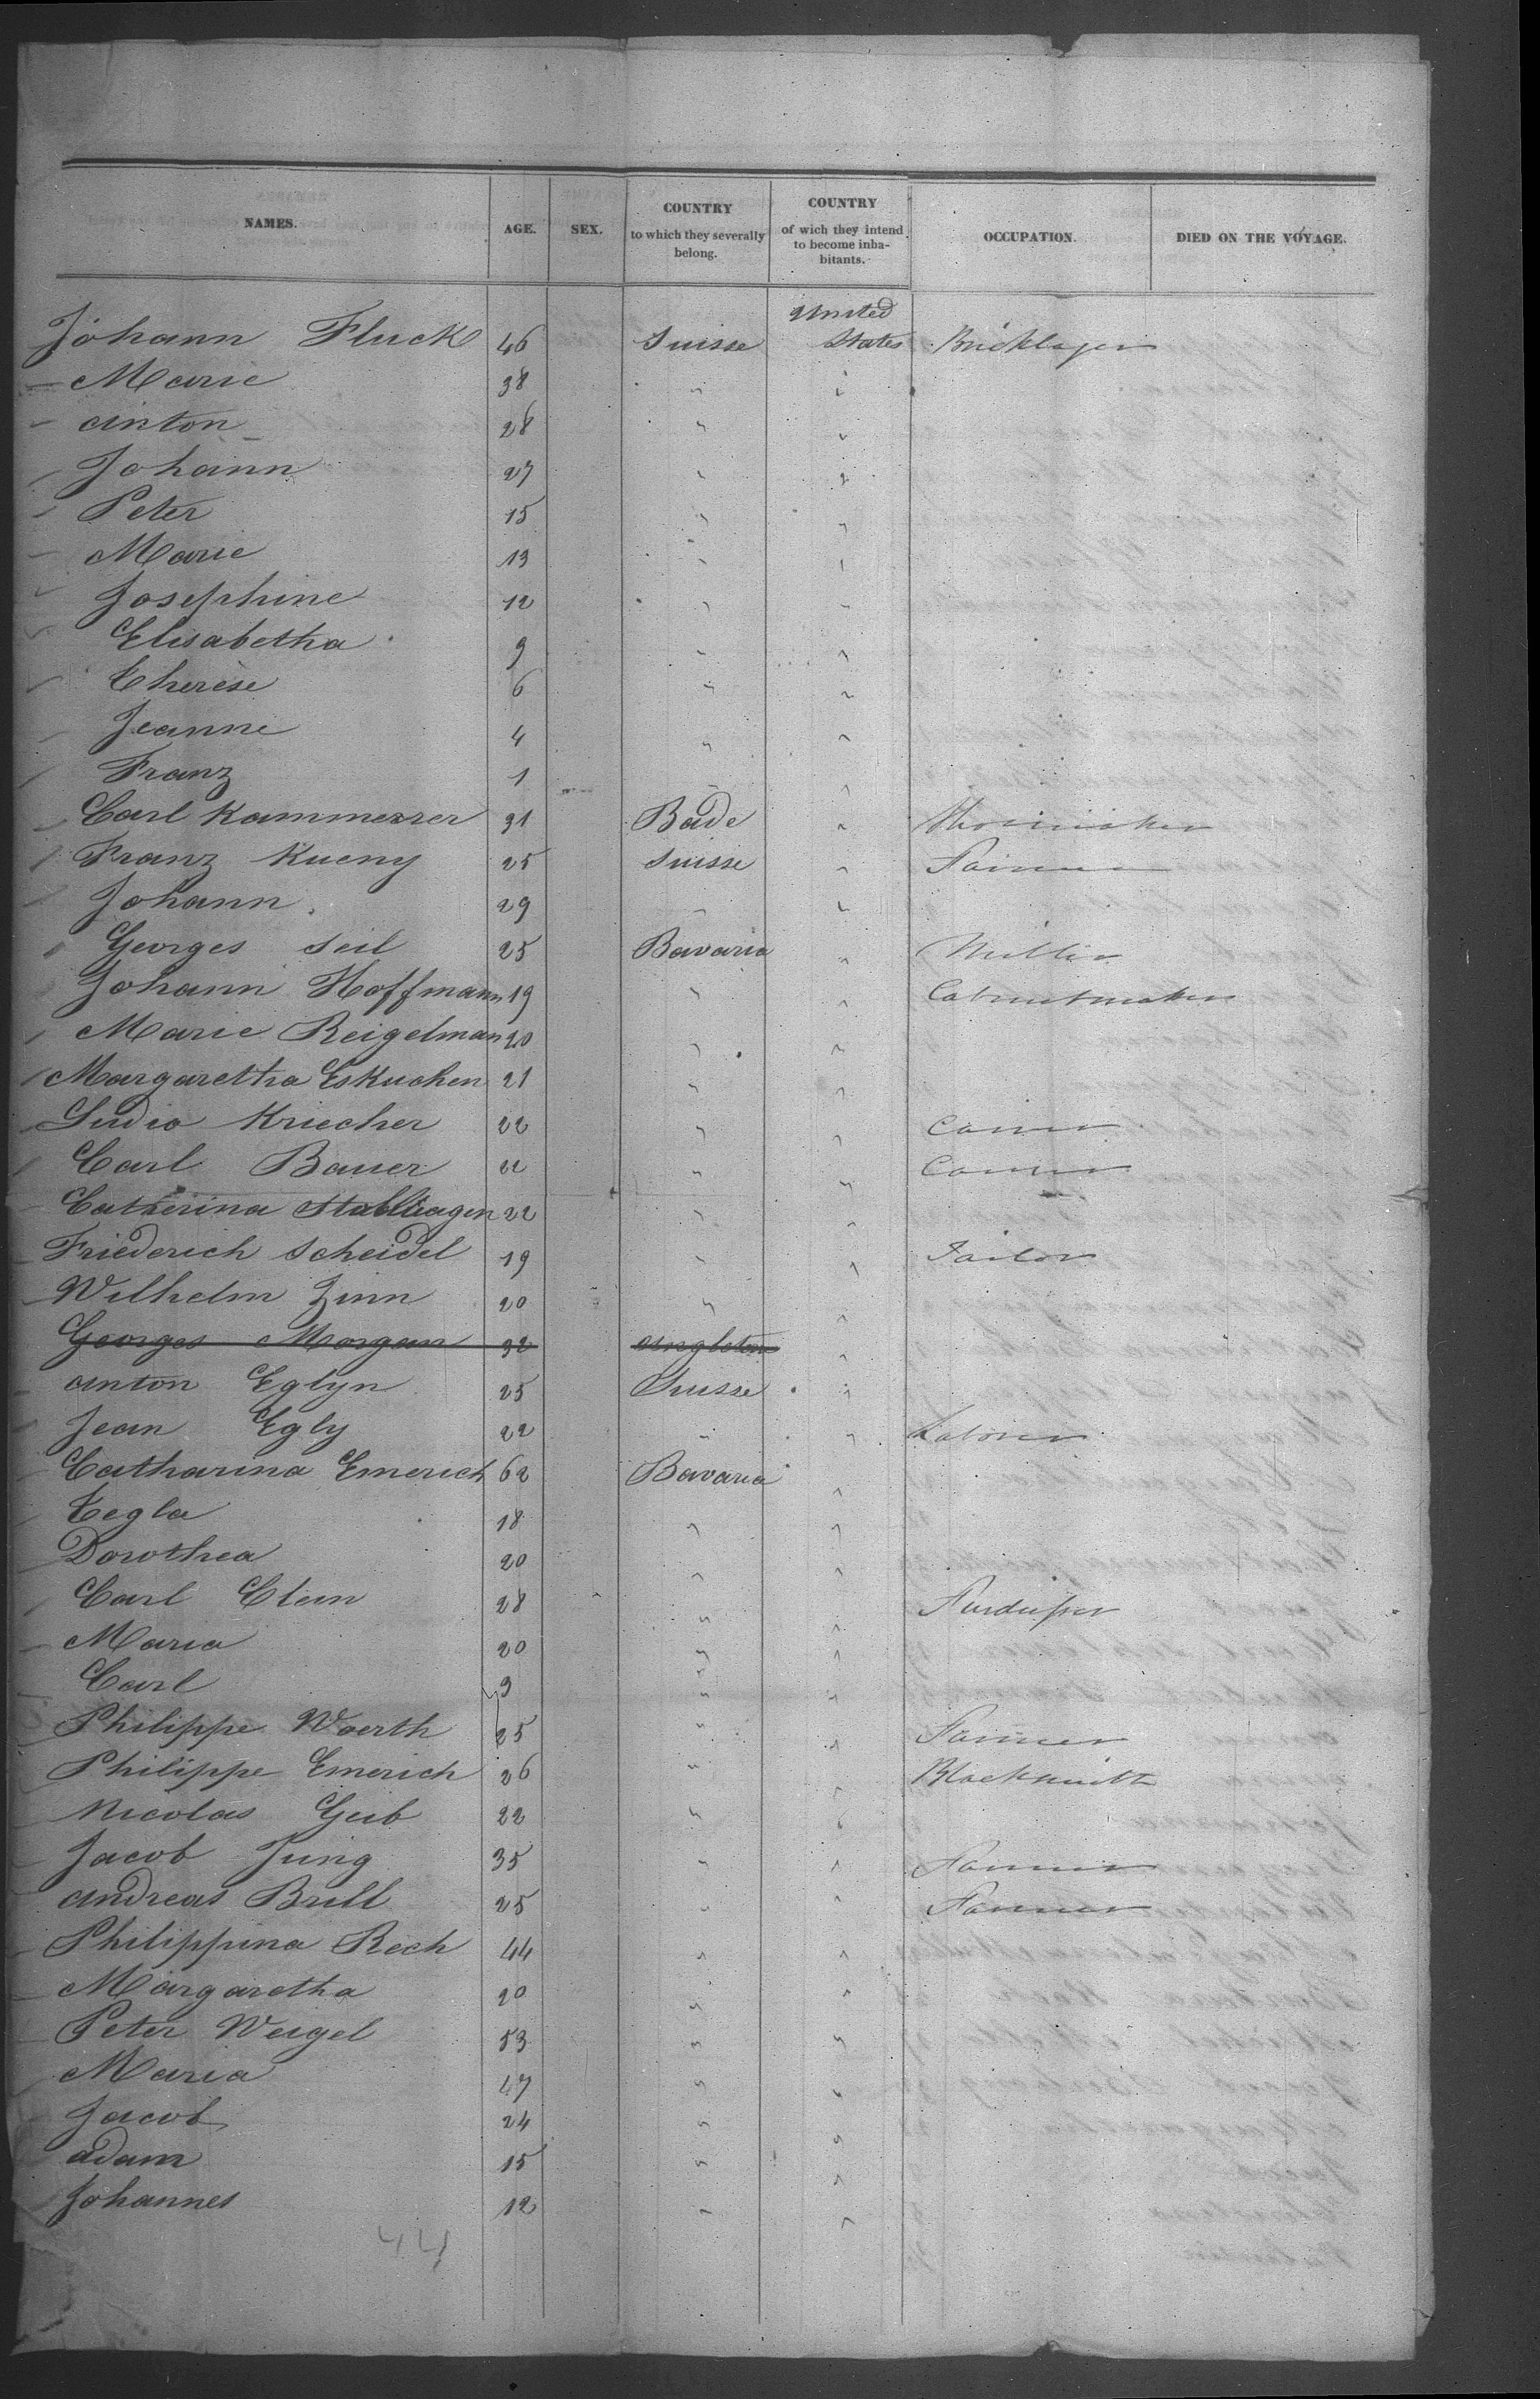 NAMES. AGE. SEX. COUNTRY to which they severally belong. COUNTRY of wich they intend to become inhabitants. OCCUPATION. DIED ON THE VOYAGE.
United
Johann Fluck 46 Suisse States Bricklayer
Marie 38 " "
Anton 28 " "
Johann 27 " "
Peter 15 " "
Marie 13 " "
Josephine 12 " "
Elisabetha 9 " "
Therèse 6 " "
Jeanne 4 " "
Franz 1 " "
Carl Kammerrer 31 Bade " Shoemaker
Franz Kueny 25 Suisse " Farmer
Johann 29 " "
Georges Seil 25 Bavaria " Miller
Johann Hoffmann 19 " " Cabinetmaker
Marie Reigelman 20 " "
Margaretha Eskuchen 21 " "
Ludio Kriecher 22 " "
Carl Bauer 22 " "
Catherina 22 " "
Friederich Scheidel 19 " " Tailor
Wilhelm Zinn 20 " "
Georges Morgan 32 "
Anton Eglyn 25 Suisse "
Jean Egly 22 " " Laborer
Catharina Emerich 62 Bavaria "
Tegla 18 " "
Dorothea 20 " "
Carl Clem 28 " "
Maria 20 " "
Carl 9 " "
Philippe Woerth 25 " " Farmer
Philippe Emerich 26 " " Blacksmith
Nicolas Geib 22 " "
Jacob Jung 35 " " Farmer
Andreas Brill 25 " " Farmer
Philippina Rech 44 " "
Margaretha 20 " "
Peter Weigel 53 " "
Maria 47 " "
Jacob 24 " "
Adam 15 " "
Johannes 12 " "
44